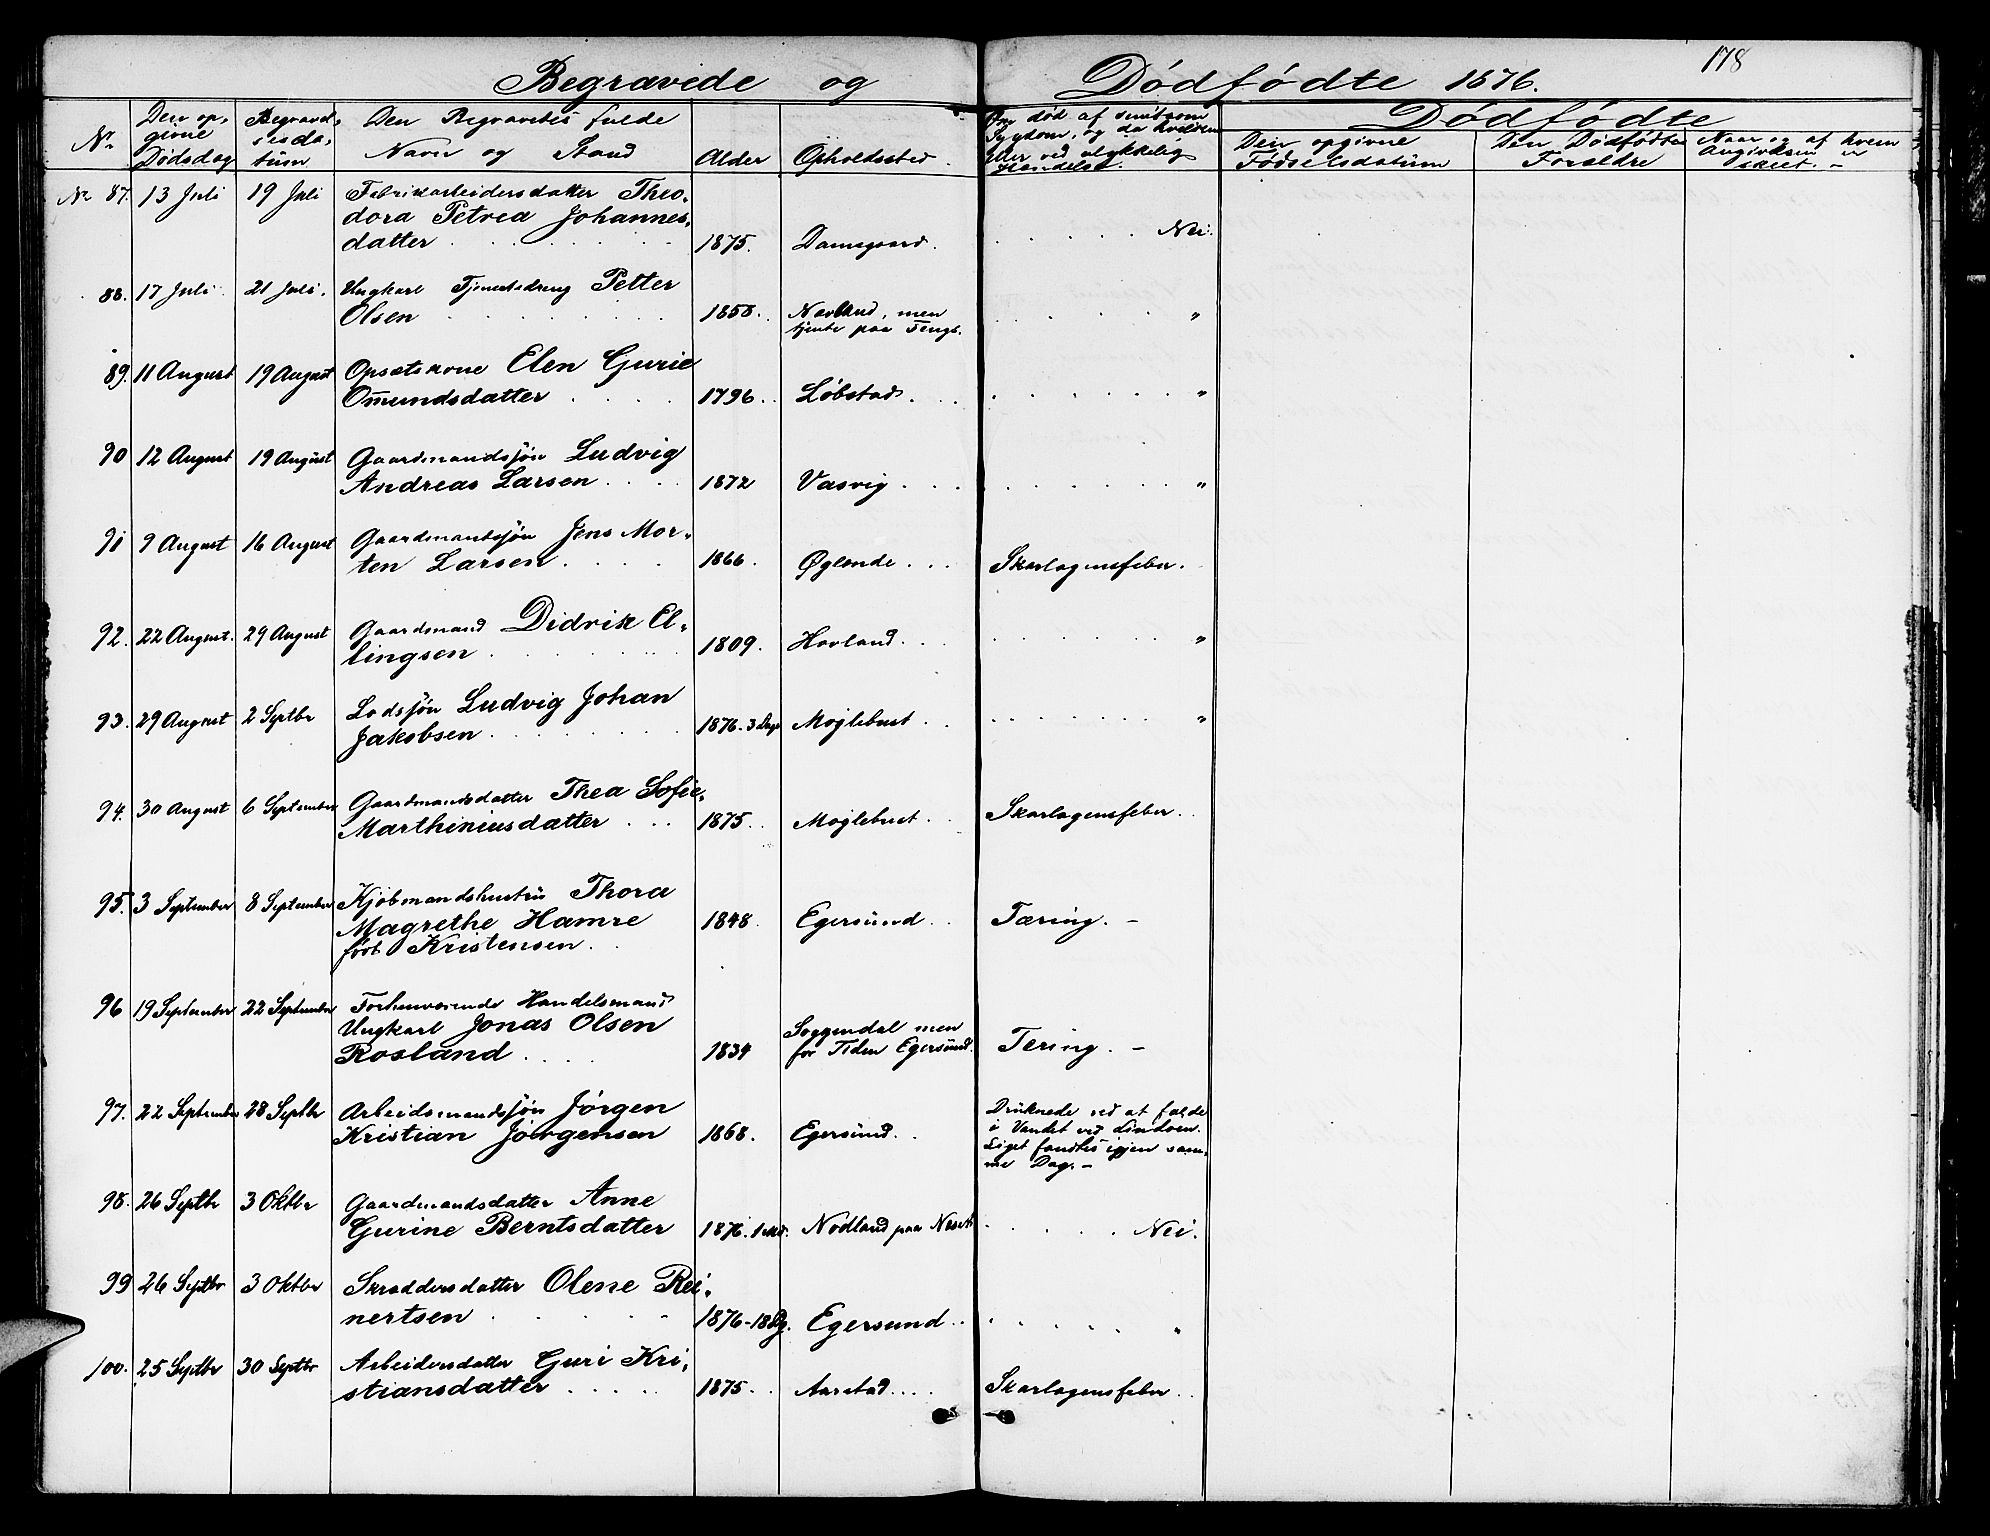 178
Begravede og Dødfødte 1876.
Nr.
Den op-
givne
Dødsdag
Begravel-
sesda-
tum
Den Begravedes fulde
Navn og Stand
Alder
Opholdssted.
Om død af smitsom
Sygdom, og da hvilken
Eller ved ulykkelig
Hændelse.
Dødfødte
Den opgivne
Fødselsdatum
Den Dødfødtes
Forældre
Naar og af hvem
Angivelsen er
skeet. -
Nr 87. 13 Juli 19 Juli Fabrikarbeidersdatter Theo-
dora Petrea Johannes-
datter 1875. Damsgaard. Nei.
88. 17 Juli 21 Juli. Ungkarl Tjenestedreng Petter
Olsen 1858. Navland, men
tjente paa Tengs. "
89. 11 August 19 August Opsætskone Elen Gurie
Omundsdatter 1796. Løbstad. "
90 12 August 19 August Gaardmandsjøn Ludvig
Andreas Larsen 1872 Vasvig "
91 9 August 16 August Gaardmandsjøn Jens Mor-
ten Larsen 1866. Øglende Skarlagensfeber.
92. 22 August. 29 August Gaardmand Didrik El-
lingsen 1809. Hovland "
93. 29 August 2 Septbr Lodsjøn Ludvig Johan
Jakobsen 1876. 3 Dage Møglebust "
94. 30 August 6 September Gaardmandsdatter Thea Sofie
Marthiniusdatter 1875. Møglebust Skarlagensfeber.
95. 3 September 8 September Kjøbmandshustru Thora
Magrethe Hamre
født Kristensen 1848. Egersund Tæring. -
96 19 September 22 September Forhenværende Handelsmand
Ungkarl Jonas Olsen
Rosland 1834 Soggendal men
for Tiden Egersund. Tering. -
97. 22 September 28 Septbr Arbeidsmandsjøn Jörgen
Kristian Jörgensen 1868. Egersund. Druknede ved at falde
i Vandet ved Lindøen.
Liget fandtes igjen sam-
me Dag. -
98. 26 Septbr 3 Oktbr Gaardmandsdatter Anne
Gurine Berntsdatter 1876. 1 Md. Nodland paa Næset Nei.
99 26 Septbr 3 Oktbr Skræddersdatter Olene Rei-
nertsen 1876-18 Dg. Egersund "
100. 25 Septbr 30 Septbr Arbeidersdatter Guri Kri-
stiansdatter 1875. Aarstad Skarlagensfeber